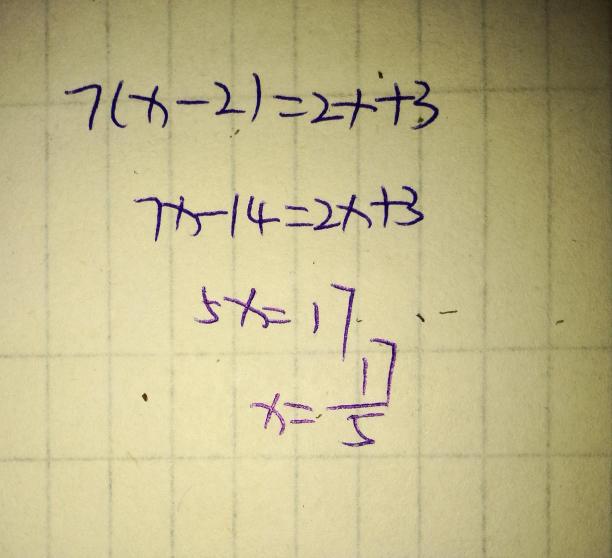 7(x-2)=2x+3
7x-14=2x+3
5x=17
x=17/5